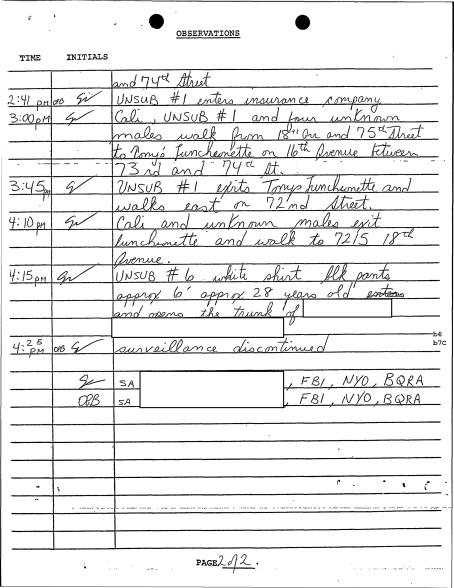 OBSERVATIONS
TIME INITIALS
and 74th Street
2:41 pm UNSUB #1 enters insurance company
3:00pm Cali, UNSUB #1 and four unknown
males walk from 18th Ave and 75th Street
to Tony's Luncheonette on 16th Avenue between
73rd and 74th St.
3:45pm UNSUB #1 exits Tonys Luncheonette and
walks east on 72nd Street.
4:10pm Cali and unknown males exit
luncheonette and walk to 7215 18th
Avenue.
4:15pm UNSUB #6 white shirt blk pants
approx 6' approx 28 years old
and opens the trunk of
b6
b7C
4:25 PM surveillance discontinued
SA , FBI, NYO, BQRA
SA , FBI, NYO, BQRA
PAGE 2 of 2.